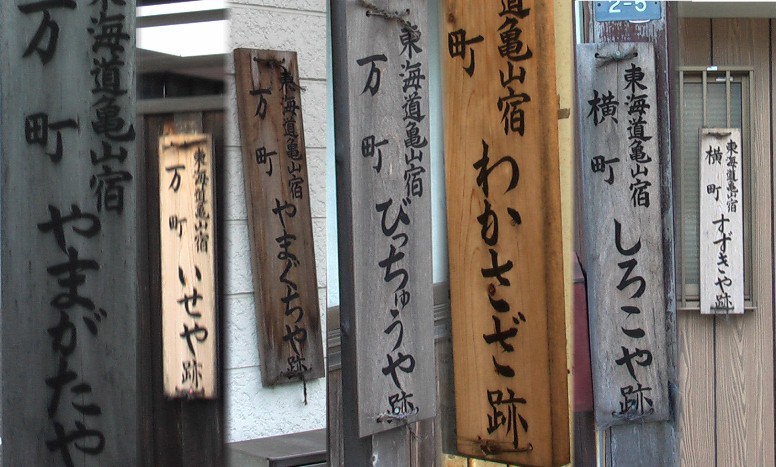 東海道亀山宿
万町
やまがたや
東海道亀山宿
万町
いせや跡
東海道亀山宿
万町
やまぐちや跡
東海道亀山宿
万町
びっちゅうや跡
道亀山宿
町
わかさざ跡
2-5
東海道亀山宿
横町
しろこや跡
東海道亀山宿
横町
すずきや跡